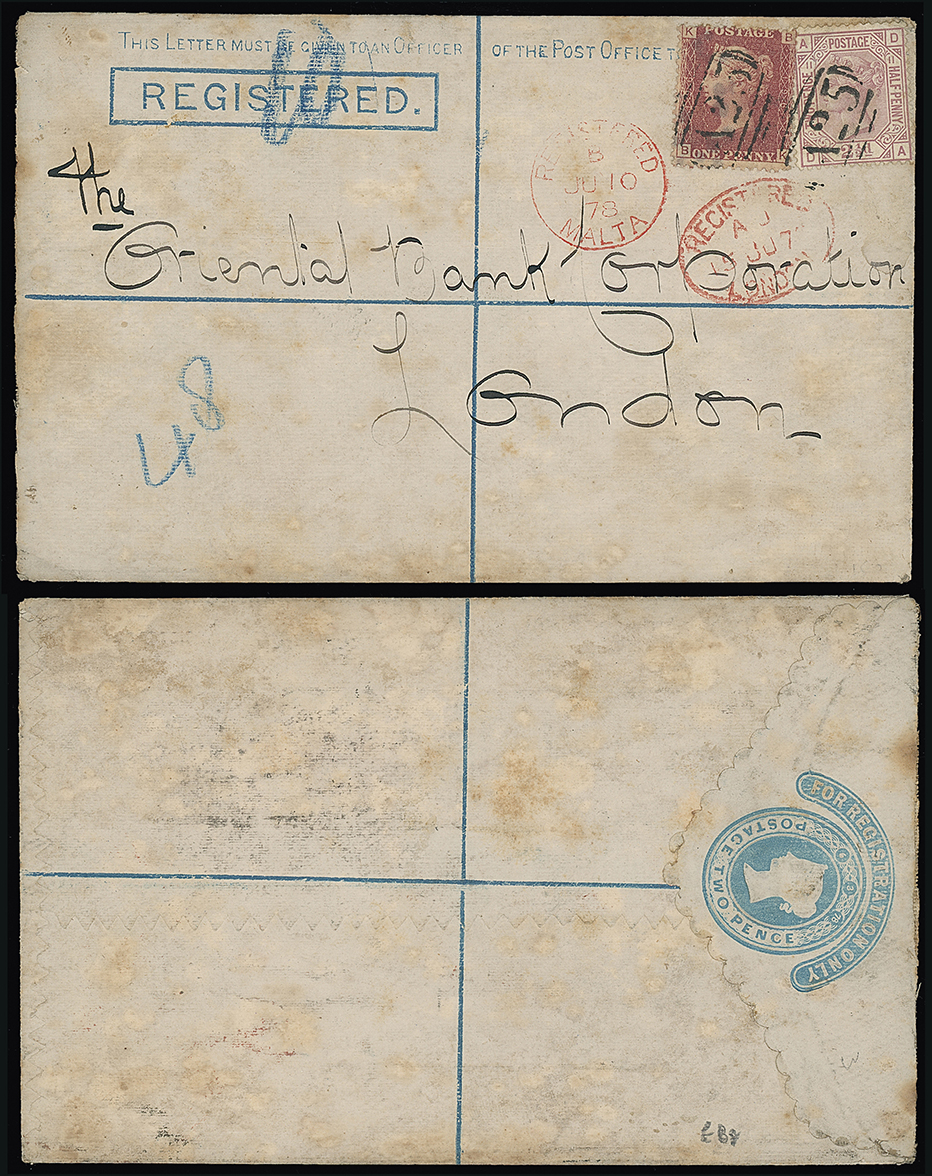 THIS LETTER MUST BE GIVEN TO AN OFFICER OF THE POST OFFICE T
REGISTERED.
K POSTAGE B
B ONE PENNY K
A POSTAGE D
HALFPENNY
D 2½d A
REGISTERED
B
JU 10
78
MALTA
REGISTERED
A
JU 7
LONDON
the
Oriental Bank Corporation
London
48
FOR REGISTRATION ONLY
POSTAGE TWO PENCE